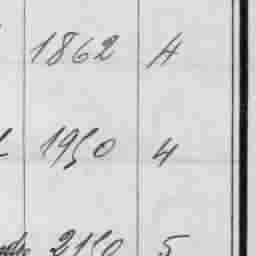 1862 4
1950 4
2150 5